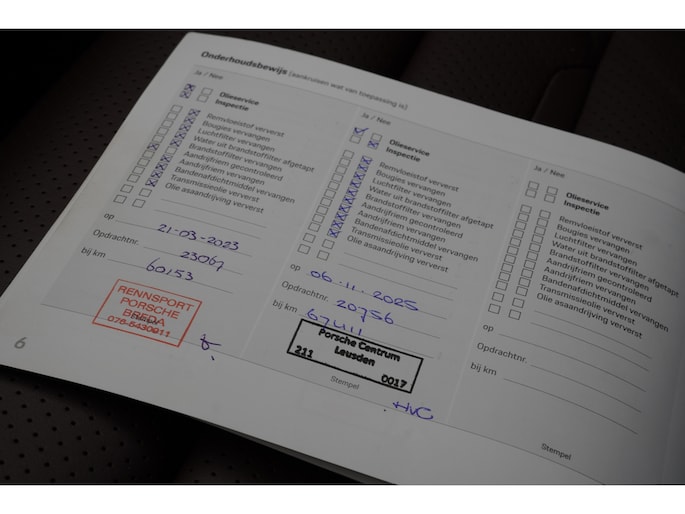 Onderhoudsbewijs (aankruisen wat van toepassing is)
Ja / Nee
Olieservice
Inspectie
Remvloeistof ververst
Bougies vervangen
Luchtfilter vervangen
Water uit brandstoffilter afgetapt
Brandstoffilter vervangen
Aandrijfriem gecontroleerd
Aandrijfriem vervangen
Bandenafdichtmiddel vervangen
Transmissieolie ververst
Olie asaandrijving ververst
op 21-03-2023
Opdrachtnr. 23067
bij km 60153
RENNSPORT
PORSCHE
BREDA
6
Ja / Nee
Olieservice
Inspectie
Remvloeistof ververst
Bougies vervangen
Luchtfilter vervangen
Water uit brandstoffilter afgetapt
Brandstoffilter vervangen
Aandrijfriem gecontroleerd
Aandrijfriem vervangen
Bandenafdichtmiddel vervangen
Transmissieolie ververst
Olie asaandrijving ververst
op 06-11-2025
Opdrachtnr. 20756
bij km
Porsche Centrum
Leusden
211 0017
Stempel
HvC
Ja / Nee
Olieservice
Inspectie
Remvloeistof ververst
Bougies vervangen
Luchtfilter vervangen
Water uit brandstoffilter afgetapt
Brandstoffilter vervangen
Aandrijfriem gecontroleerd
Aandrijfriem vervangen
Bandenafdichtmiddel vervangen
Transmissieolie ververst
Olie asaandrijving ververst
op
Opdrachtnr.
bij km
Stempel